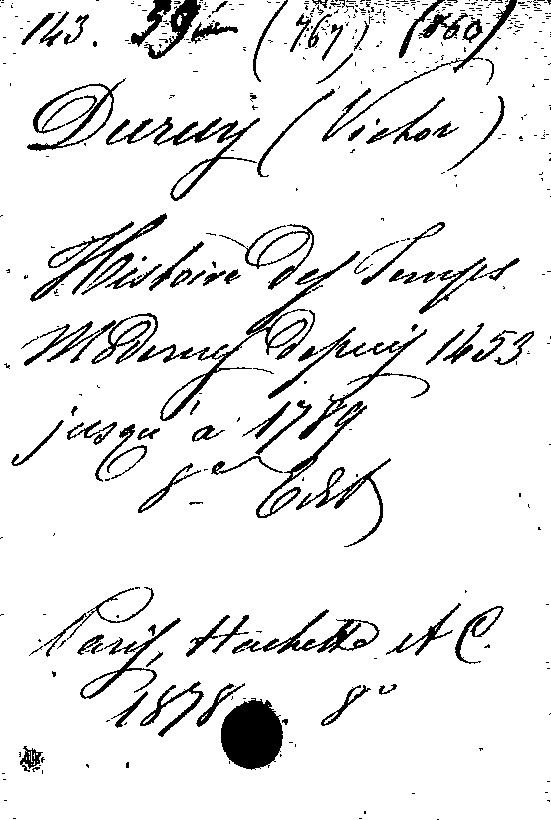 143. 394 (767) (860)
Duruy (Victor)
Histoire des Temps
Modernes depuis 1453
jusqu'à 1789
8e Edit
Paris, Hachette et C.
1878. 8o